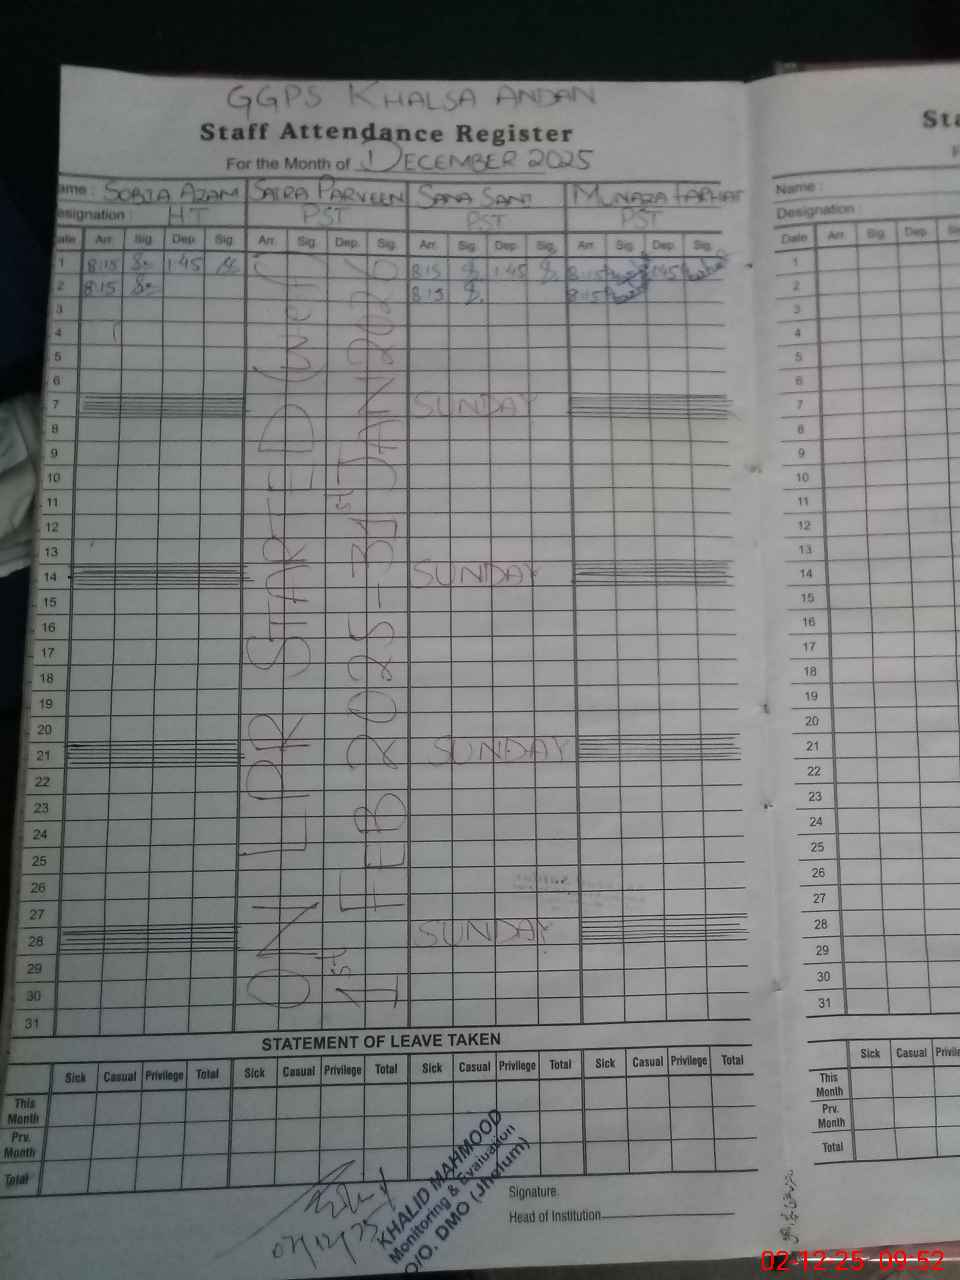 GGPS KHALSA ANDAN
Staff Attendance Register
For the Month of DECEMBER 2025
ame : SOBIA AZAM SAIRA PARVEEN SANA SANI MUNAZA FARHAT
esignation : HT PST PST PST
ate Arr. Sig. Dep. Sig. Arr. Sig. Dep. Sig. Arr. Sig. Dep. Sig. Arr. Sig. Dep. Sig.
1 8:15 1:45 8:15 1:45 8:15 1:45
2 8:15 8:15 8:15
3
4
5
6
7 SUNDAY
8
9
10
11
12
13
14 SUNDAY
15
16
17
18
19
20
21 SUNDAY
22
23
24
25
26
27
28 SUNDAY
29
30
31
ON LPR STARTED (w.e.f)
1st FEB 2025 - 31st JAN 2026
STATEMENT OF LEAVE TAKEN
Sick Casual Privilege Total Sick Casual Privilege Total Sick Casual Privilege Total Sick Casual Privilege Total
This Month
Prv. Month
Total
KHALID MAHMOOD
Monitoring & Evaluation
O/O. DMO (Jhelum)
Signature.
Head of Institution
Sta
Name :
Designation :
Date Arr. Sig. Dep.
1
2
3
4
5
6
7
8
9
10
11
12
13
14
15
16
17
18
19
20
21
22
23
24
25
26
27
28
29
30
31
Sick Casual Privile
This Month
Prv. Month
Total
02-12-25 09:52